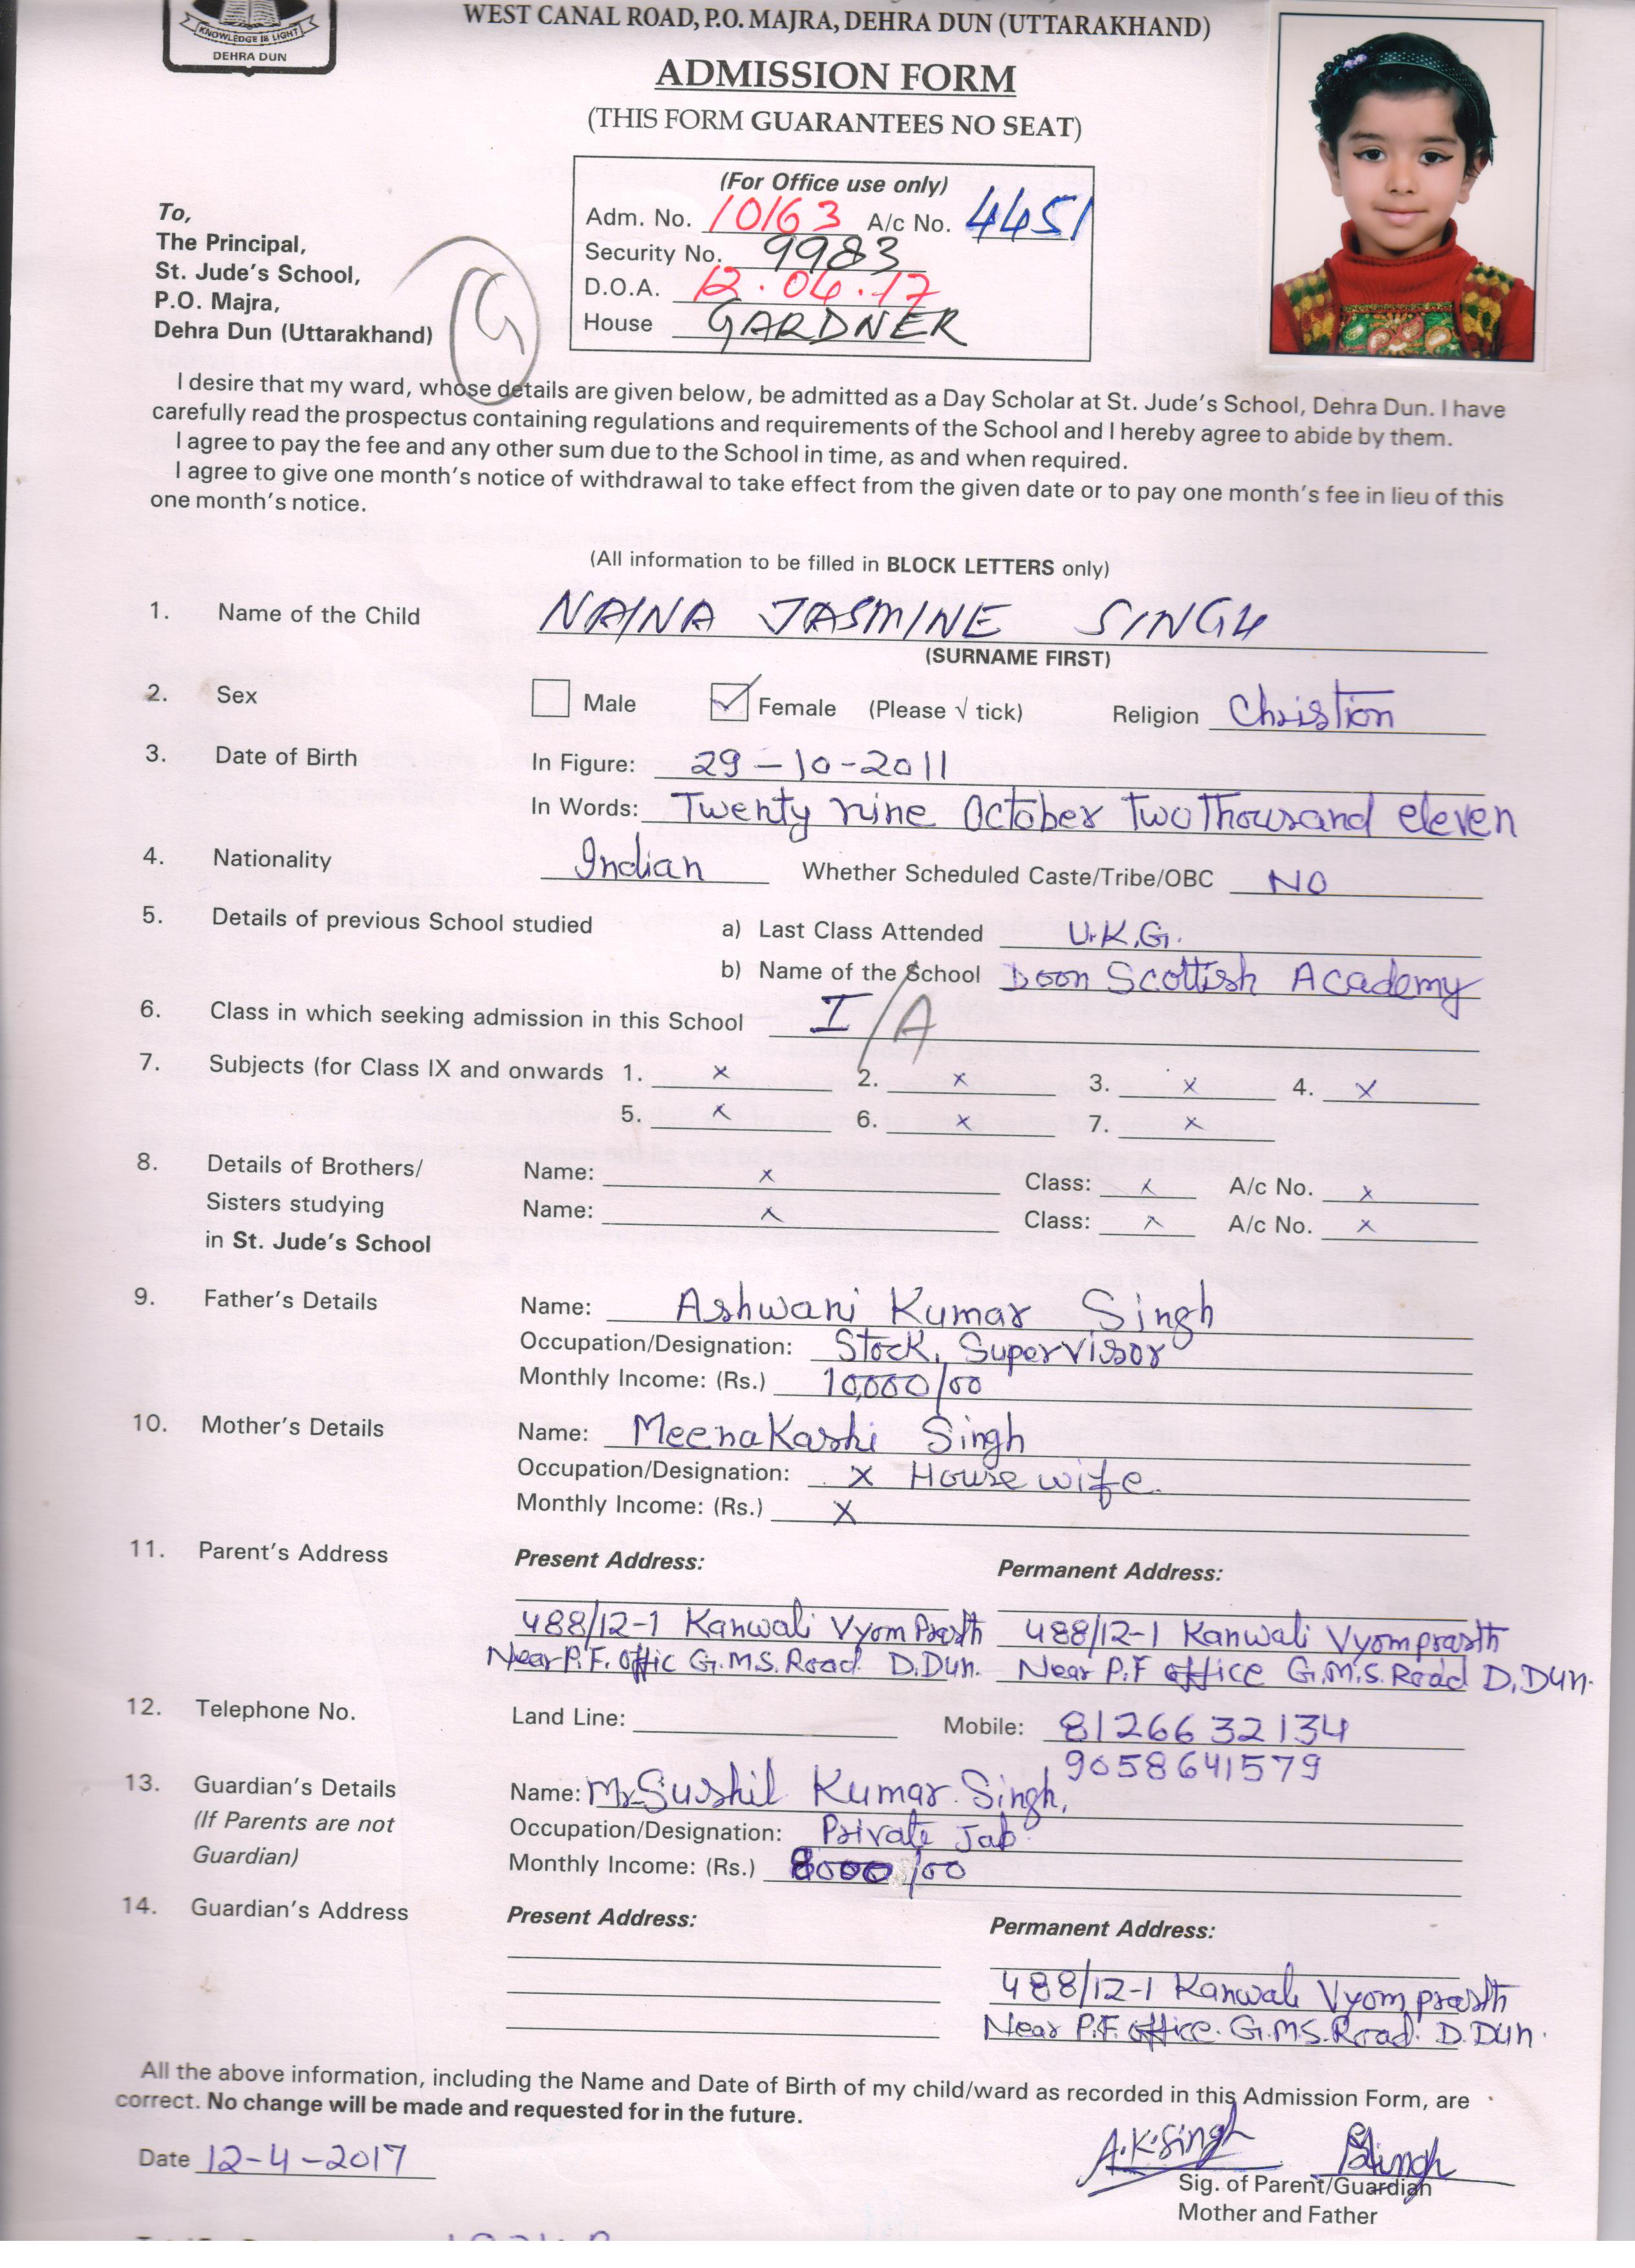 KNOWLEDGE IS LIGHT
DEHRA DUN
WEST CANAL ROAD, P.O. MAJRA, DEHRA DUN (UTTARAKHAND)
ADMISSION FORM
(THIS FORM GUARANTEES NO SEAT)
(For Office use only)
Adm. No. 10163 A/c No. 4451
Security No. 9983
D.O.A. 12.04.17
House GARDNER
To,
The Principal,
St. Jude's School,
P.O. Majra,
Dehra Dun (Uttarakhand)
G
I desire that my ward, whose details are given below, be admitted as a Day Scholar at St. Jude's School, Dehra Dun. I have
carefully read the prospectus containing regulations and requirements of the School and I hereby agree to abide by them.
I agree to pay the fee and any other sum due to the School in time, as and when required.
I agree to give one month's notice of withdrawal to take effect from the given date or to pay one month's fee in lieu of this
one month's notice.
(All information to be filled in BLOCK LETTERS only)
1. Name of the Child NAINA JASMINE SINGH
(SURNAME FIRST)
2. Sex Male Female (Please √ tick) Religion Christion
3. Date of Birth In Figure: 29-10-2011
In Words: Twenty nine October Two Thousand eleven
4. Nationality Indian Whether Scheduled Caste/Tribe/OBC NO
5. Details of previous School studied a) Last Class Attended U.K.G.
b) Name of the School Doon Scottish Academy
6. Class in which seeking admission in this School I/A
7. Subjects (for Class IX and onwards 1. x 2. x 3. x 4. x
5. x 6. x 7. x
8. Details of Brothers/ Name: x Class: x A/c No. x
Sisters studying Name: x Class: x A/c No. x
in St. Jude's School
9. Father's Details Name: Ashwani Kumar Singh
Occupation/Designation: Stock, Supervisor
Monthly Income: (Rs.) 10,000/00
10. Mother's Details Name: MeenaKashi Singh
Occupation/Designation: x House wife.
Monthly Income: (Rs.) X
11. Parent's Address Present Address: Permanent Address:
488/12-1 Kanwali Vyom Prasth 488/12-1 Kanwali Vyomprasth
Near P.F. offic G.M.S. Road D.Dun. Near P.F office G.M.S. Road D.Dun.
12. Telephone No. Land Line: Mobile: 8126632134
9058641579
13. Guardian's Details Name: Mr Sushil Kumar Singh,
(If Parents are not Occupation/Designation: Private Job
Guardian) Monthly Income: (Rs.) 8000/00
14. Guardian's Address Present Address: Permanent Address:
488/12-1 Kanwali Vyom prasth
Near P.F. office. G.M.S. Road. D.Dun.
All the above information, including the Name and Date of Birth of my child/ward as recorded in this Admission Form, are
correct. No change will be made and requested for in the future.
Date 12-4-2017 A.K.Singh Singh
Sig. of Parent/Guardian
Mother and Father